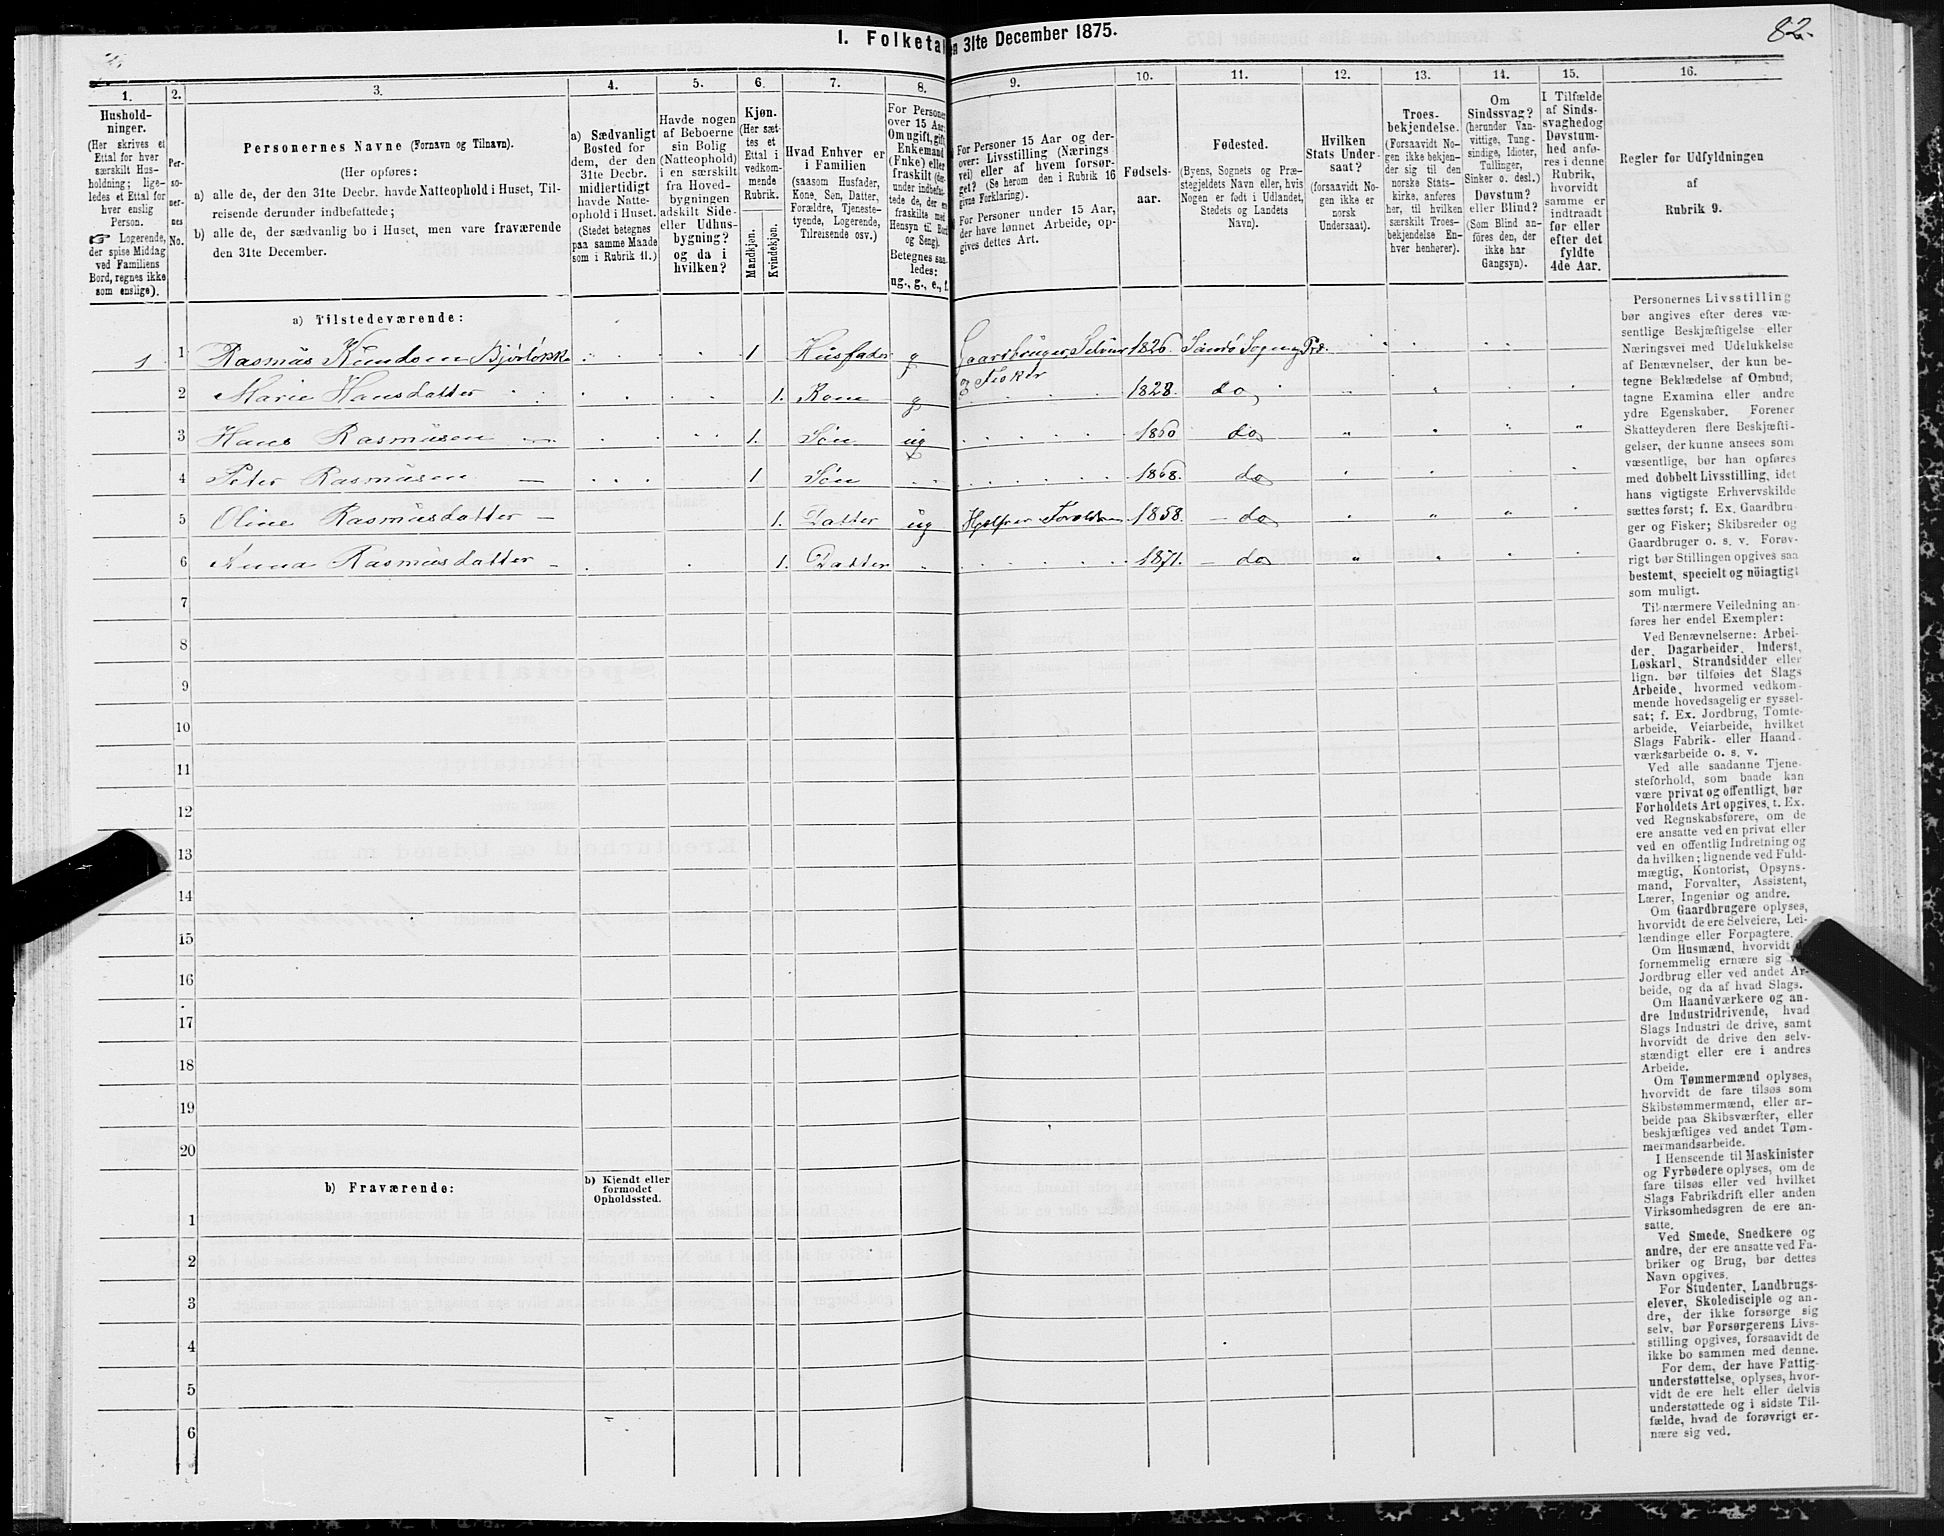 82.
I. Folketal
n 31te December 1875.
1.
2.
3.
4.
5.
6.
7.
8.
9.
10.
11.
12.
13.
14.
15.
16.
Hushold-
ninger.
(Her skrives et
Ettal for hver
særskilt Hus-
holdning; lige-
ledes et Ettal for
hver enslig
Person.
☞ Logerende,
der spise Middag
ved Familiens
Bord, regnes ikke
som enslige).
Per-
so-
ner-
nes
No.
Personernes Navne (Fornavn og Tilnavn).
(Her opføres:
a) alle de, der den 31te Decbr. havde Natteophold i Huset, Til-
reisende derunder indbefattede;
b) alle de, der sædvanlig bo i Huset, men vare fraværende
den 31te December.
a) Sædvanligt
Bosted for
dem, der den
31te Decbr.
midlertidigt
havde Natte-
ophold i Huset.
(Stedet betegnes
paa samme Maade
som i Rubrik 11.)
Havde nogen
af Beboerne
sin Bolig
(Natteophold)
i en særskilt
fra Hoved-
bygningen
adskilt Side-
eller Udhus-
bygning?
og da i
hvilken?
Kjøn.
(Her sæt-
tes et
Ettal i
vedkom-
mende
Rubrik.
Mandkjøn.
Kvindekjøn.
Hvad Enhver er
i Familien
(saasom Husfader,
Kone, Søn, Datter,
Forældre, Tjeneste-
tyende, Logerende,
Tilreisende osv.)
For Personer
over 15 Aar:
Om ugift, gift,
Enkemand
(Enke) eller
fraskilt (der-
under indbefat-
tede de, der ere
fraskilte med
Hensyn til Bord
og Seng).
Betegnes saa-
ledes:
ug., g., e., f.
For Personer 15 Aar og der-
over: Livsstilling (Nærings-
vei) eller af hvem forsør-
get? (Se herom den i Rubrik 16
givne Forklaring).
For Personer under 15 Aar,
der have lønnet Arbeide, op-
gives dettes Art.
Fødsels-
aar.
Fødested.
(Byens, Sognets og Præ-
stegjeldets Navn eller, hvis
Nogen er født i Udlandet,
Stedets og Landets
Navn).
Hvilken
Stats Under-
saat?
(forsaavidt No-
gen ikke er
norsk
Undersaat).
Troes-
bekjendelse.
(Forsaavidt No-
gen ikke bekjen-
der sig til den
norske Stats-
kirke, anføres
her, til hvilken
særskilt Troes-
bekjendelse En-
hver henhører).
Om
Sindssvag?
(herunder Van-
vittige, Tung-
sindige, Idioter,
Tullinger,
Sinker o. desl.)
Døvstum?
eller Blind?
(Som Blind an-
føres den, der
ikke har
Gangsyn).
I Tilfælde
af Sinds-
svaghed og
Døvstum-
hed anfø-
res i denne
Rubrik,
hvorvidt
samme er
indtraadt
før eller
efter det
fyldte
4de Aar.
Regler for Udfyldningen
af
Rubrik 9.
a) Tilstedeværende:
1 1 Rasmus Knudsen 1 Husfader g Gaardbruger Selveier 1826. Sandø Sogn og Præ.
& Fisker
2 Marie Hansdatter 1. Kone g 1828. do
3 Hans Rasmusen 1. Søn ug 1860 do
4 Peter Rasmusen 1 Søn 1868. do
5 Oline Rasmusdatter 1. Datter ug Hjelper 1858. do
6 Anna Rasmusdatter 1. Datter 1871. do
7
8
9
10
11
12
13
14
15
16
17
18
19
20
b) Fraværende:
b) Kjendt eller
formodet
Opholdssted.
1
2
3
4
5
6
Personernes Livsstilling
bør angives efter deres væ-
sentlige Beskjæftigelse eller
Næringsvei med Udelukkelse
af Benævnelser, der kun be-
tegne Beklædelse af Ombud,
tagne Examina eller andre
ydre Egenskaber. Forener
Skatteyderen flere Beskjæfti-
gelser, der kunne ansees som
væsentlige, bør han opføres
med dobbelt Livsstilling, idet
hans vigtigste Erhvervskilde
sættes først; f. Ex. Gaardbru-
ger og Fisker; Skibsreder og
Gaardbruger o. s. v. Forøv-
rigt bør Stillingen opgives saa
bestemt, specielt og nöiagtigt
som muligt.
Til nærmere Veiledning an-
føres her endel Exempler:
Ved Benævnelserne: Arbei-
der, Dagarbeider, Inderst,
Løskarl, Strandsidder eller
lign. bør tilføies det Slags
Arbeide, hvormed vedkom-
mende hovedsagelig er syssel-
sat; f. Ex. Jordbrug, Tomte-
arbeide, Veiarbeide, hvilket
Slags Fabrik- eller Haand-
værksarbeide o. s. v.
Ved alle saadanne Tjene-
steforhold, som baade kan
være privat og offentligt, bør
Forholdets Art opgives, t. Ex.
ved Regnskabsførere, om de
ere ansatte ved en privat eller
ved en offentlig Indretning og
da hvilken; lignende ved Fuld-
mægtig, Kontorist, Opsyns-
mand, Forvalter, Assistent,
Lærer, Ingeniør og andre.
Om Gaardbrugere oplyses,
hvorvidt de ere Selveiere, Lei-
lændinge eller Forpagtere.
Om Husmænd, hvorvidt de
fornemmelig ernære sig ved
Jordbrug eller ved andet Ar-
beide, og da af hvad Slags.
Om Haandværkere og an-
dre Industridrivende, hvad
Slags Industri de drive, samt
hvorvidt de drive den selv-
stændigt eller ere i andres
Arbeide.
Om Tømmermænd oplyses,
hvorvidt de fare tilsøs som
Skibstømmermænd, eller ar-
beide paa Skibsværfter, eller
beskjæftiges ved andet Tøm-
mermandsarbeide.
I Henseende til Maskinister
og Fyrbødere oplyses, om de
fare tilsøs eller ved hvilket
Slags Fabrikdrift eller anden
Virksomhedsgren de ere an-
satte.
Ved Smede, Snedkere og
andre, der ere ansatte ved Fa-
briker og Brug, bør dettes
Navn opgives.
For Studenter, Landbrugs-
elever, Skoledisciple og an-
dre, der ikke forsørge sig
selv, bør Forsørgerens Livs-
stilling opgives, forsaavidt de
ikke bo sammen med denne.
For dem, der have Fattig-
understøttelse, oplyses, hvor-
vidt de ere helt eller delvis
understøttede og i sidste Til-
fælde, hvad de forøvrigt er-
nære sig ved.